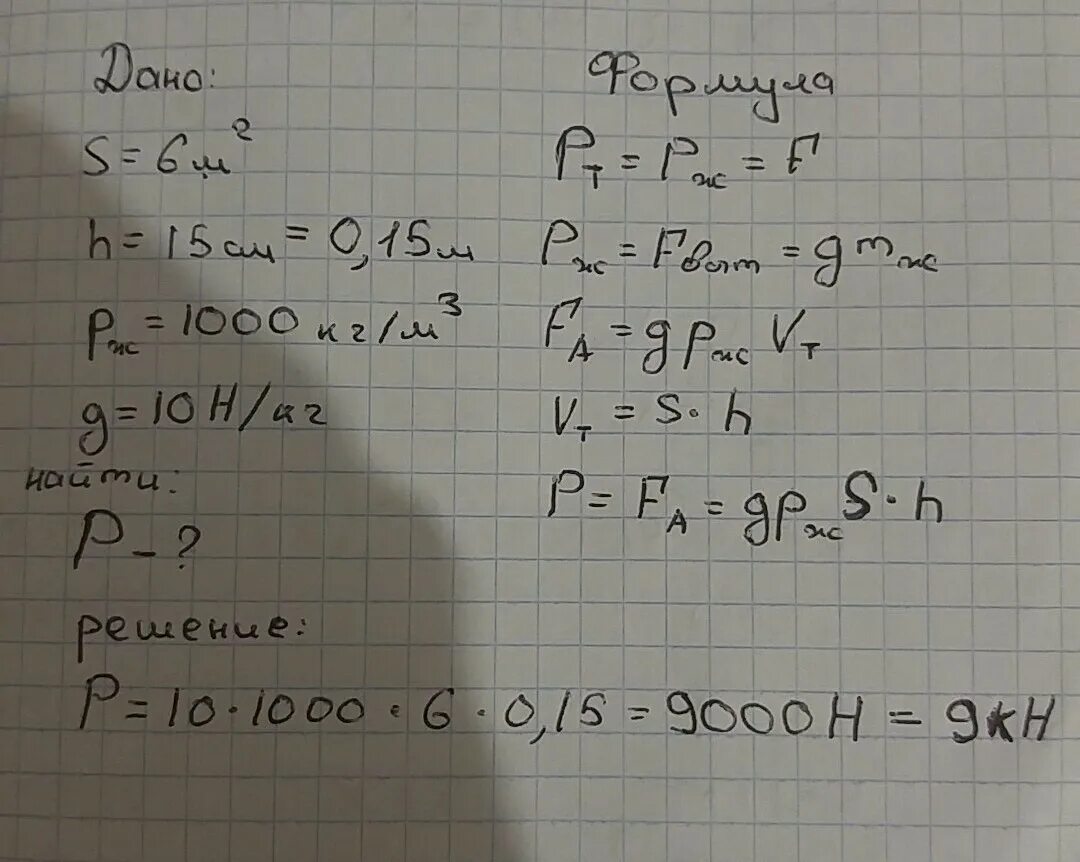 Дано:
S = 6 м²
h = 15 см = 0,15 м
ρж = 1000 кг/м³
g = 10 Н/кг
найти:
P - ?
Формула
Pт = Pж = F
Pж = Fвыт = gmж
FА = gρж Vт
Vт = S · h
P = FА = gρж S · h
решение:
P = 10 · 1000 · 6 · 0,15 = 9000 Н = 9кН